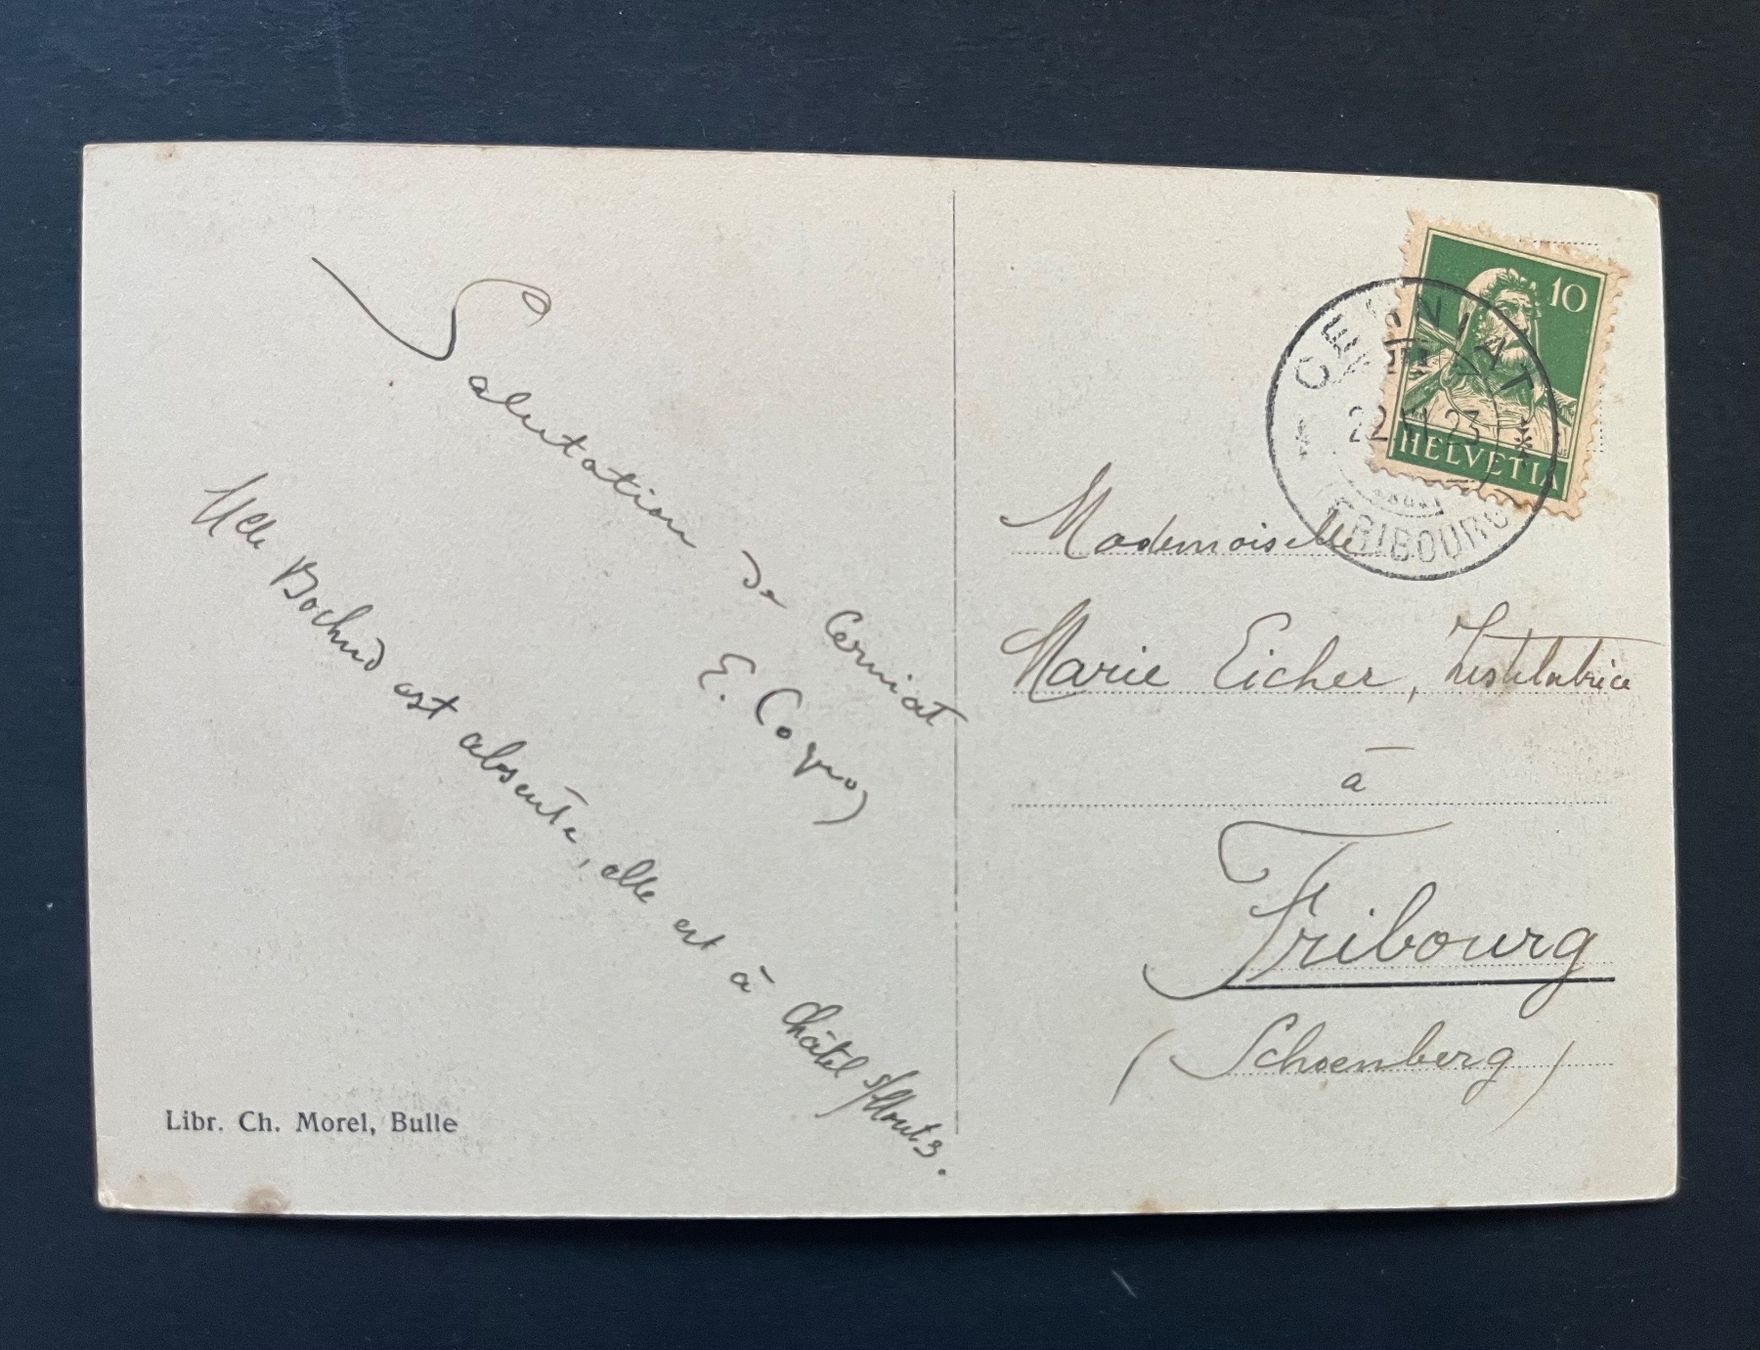 Salutation de Cerniat
E. Coquoz
Melle Bochud est absente, elle est à Châtel s/Monts.
Libr. Ch. Morel, Bulle
10
HELVETIA
CERNIAT
FRIBOURG
Mademoiselle
Marie Eicher, Institutrice
à
Fribourg
(Schoenberg)